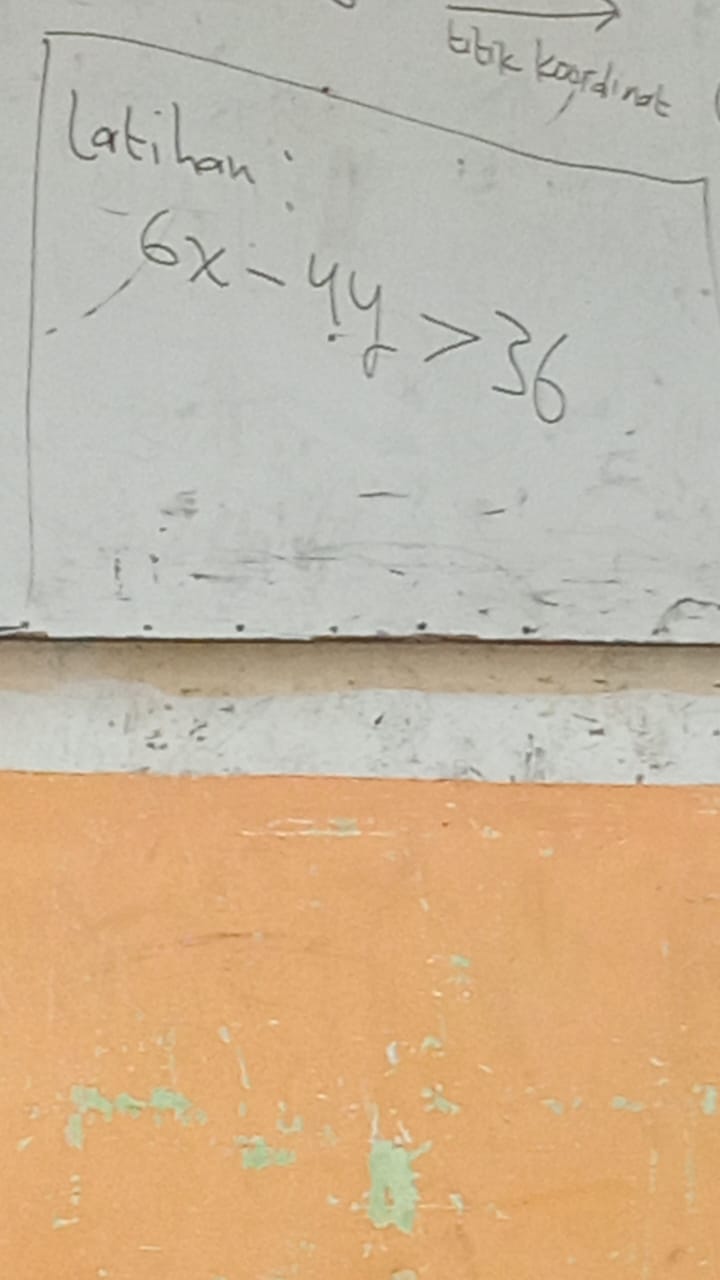 titik koordinat
Latihan :
6x - 4y > 36